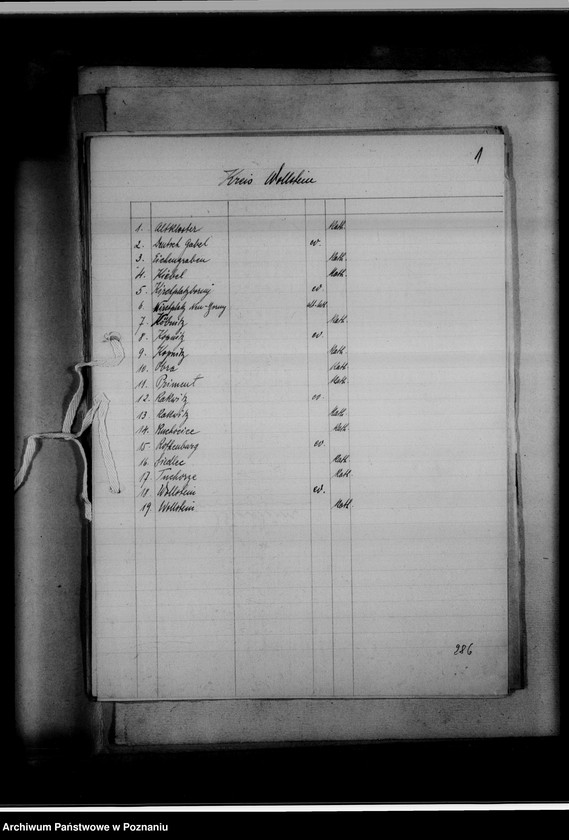 1
Kreis Wollstein
1. Altkloster Kath.
2. Deutsch Gabel ev.
3. Eichengraben Kath.
4. Kiebel Kath.
5. Kirchplatzboruy ev.
6. Kirchplatz Neu-Boruy alt-luth.
7. Köbnitz Kath.
8. Köpnitz ev.
9. Kopnitz Kath.
10. Obra Kath.
11. Priment Kath.
12. Rakwitz ev.
13. Rakwitz Kath.
14. Ruchocice Kath.
15. Rothenburg ev.
16. Siedlec Kath.
17. Tuchorze Kath.
18. Wollstein ev.
19. Wollstein Kath.
286
Archiwum Państwowe w Poznaniu